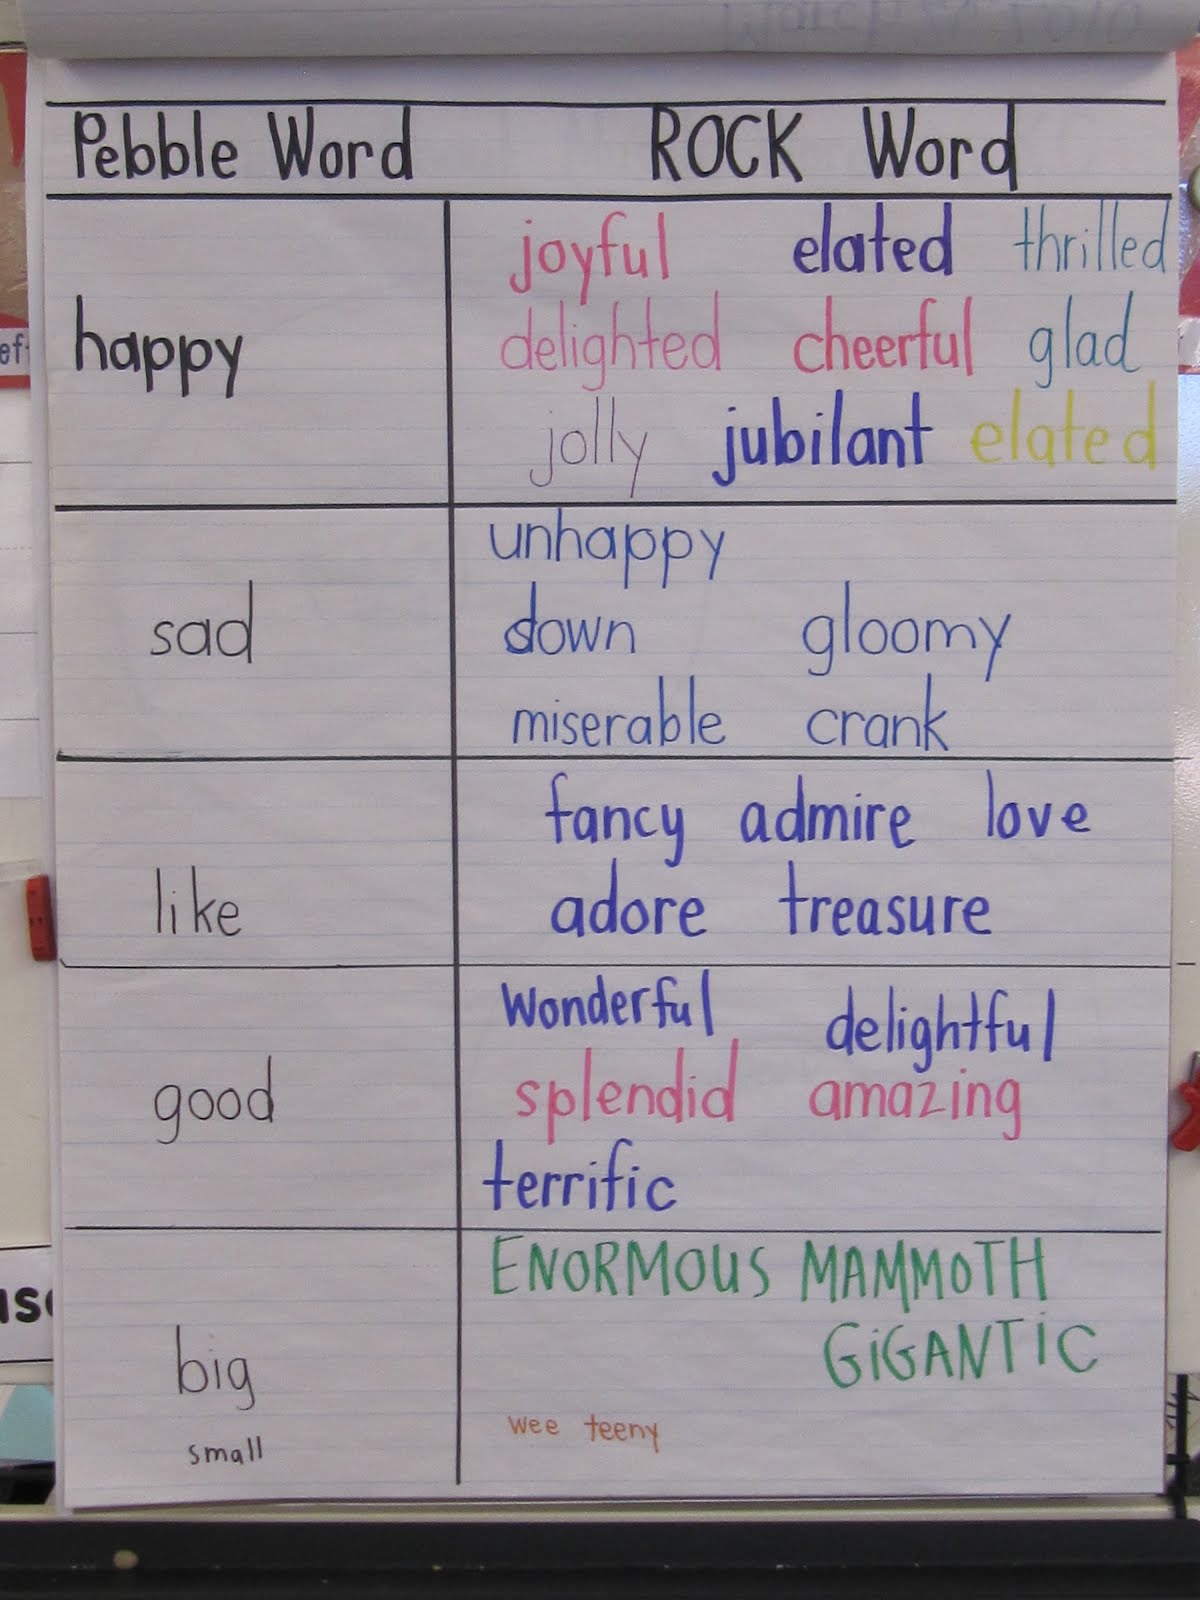 Pebble Word ROCK Word
happy
joyful elated thrilled
delighted cheerful glad
jolly jubilant elated
sad
unhappy
down gloomy
miserable crank
like
fancy admire love
adore treasure
good
wonderful delightful
splendid amazing
terrific
big
ENORMOUS MAMMOTH
GiGANTiC
small
wee teeny